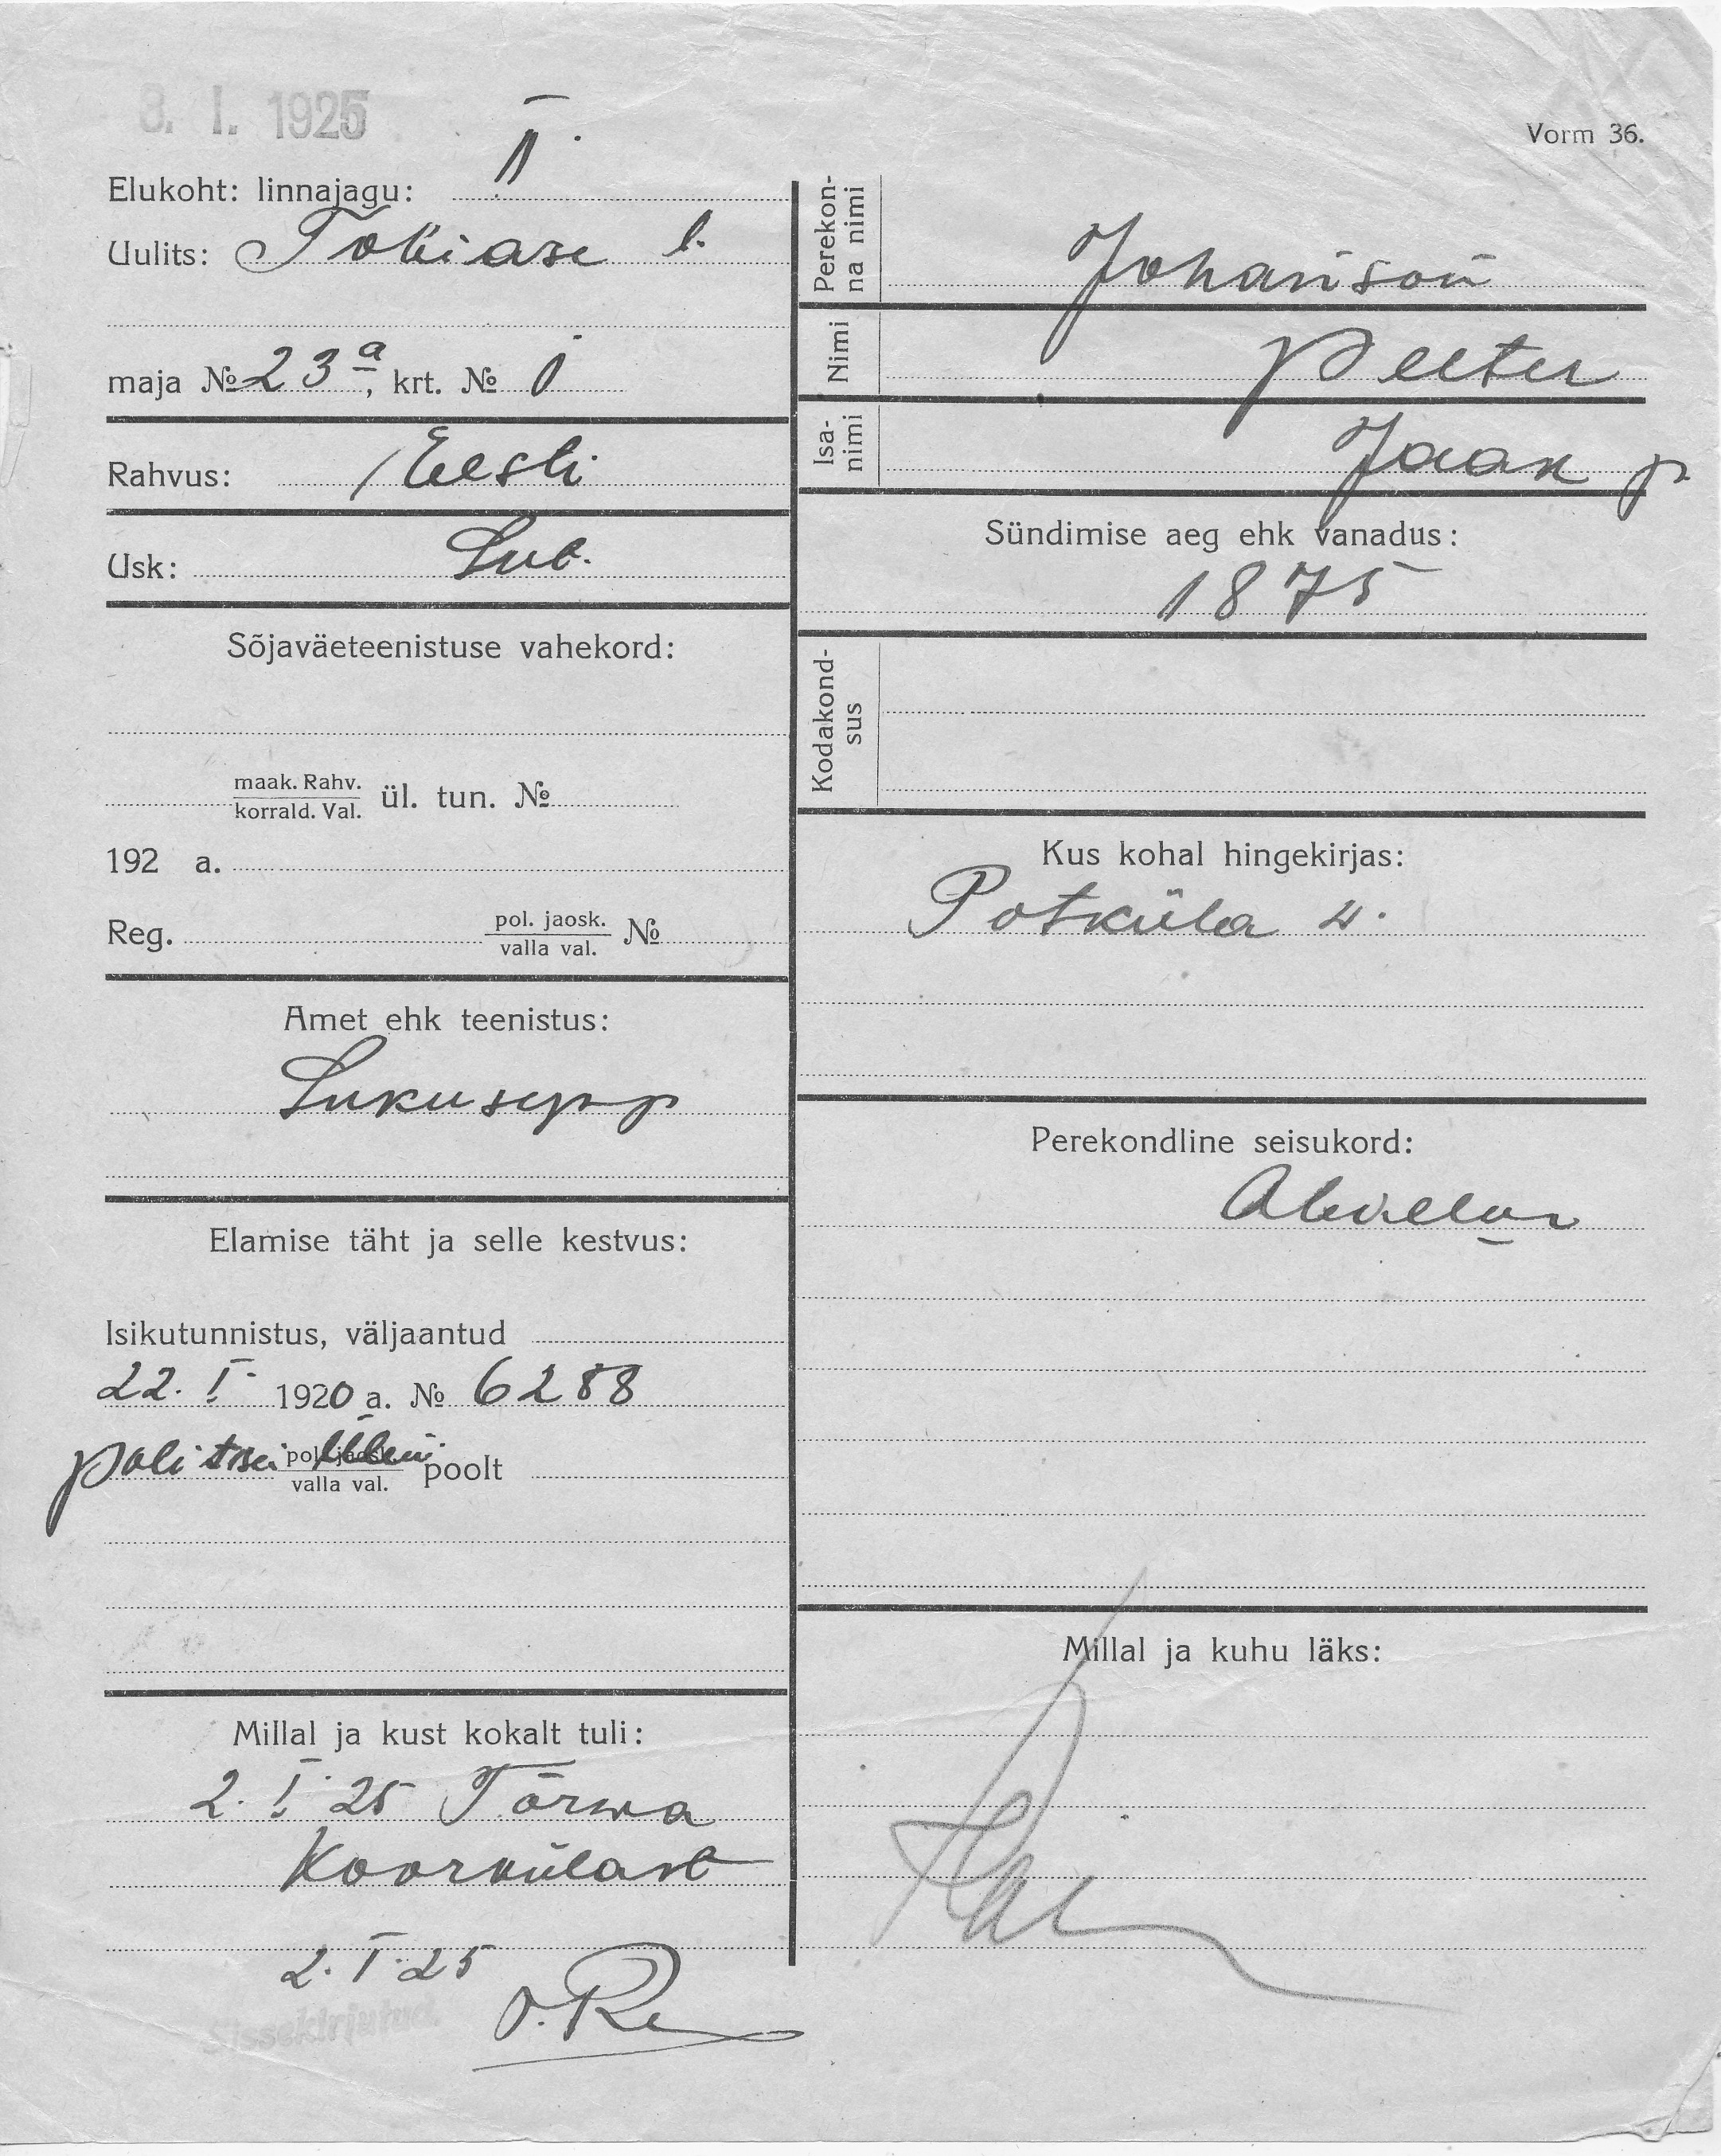 8. I. 1925
Vorm 36.
Elukoht: linnajagu: II
Uulits: Tobiase t.
maja № 23a, krt. № 1
Rahvus: Eesti
Usk: Lut.
Sõjaväeteenistuse vahekord:
maak. Rahv.
korrald. Val. ül. tun. №
192 a.
Reg. pol. jaosk.
valla val. №
Amet ehk teenistus:
Lukusepp
Elamise täht ja selle kestvus:
Isikutunnistus, väljaantud
22. I. 1920 a. № 6288
politsei pol. jaosk.
valla val. poolt
Millal ja kust kokalt tuli:
2. I. 25 Tõrwa
Koorkülast
2. I. 25
Sissekirjutud.
Perekon-
na nimi Johanson
Nimi Peeter
Isa-
nimi Jaak p
Sündimise aeg ehk vanadus:
1875
Kodakond-
sus
Kus kohal hingekirjas:
Patküla w.
Perekondline seisukord:
Abielus
Millal ja kuhu läks: